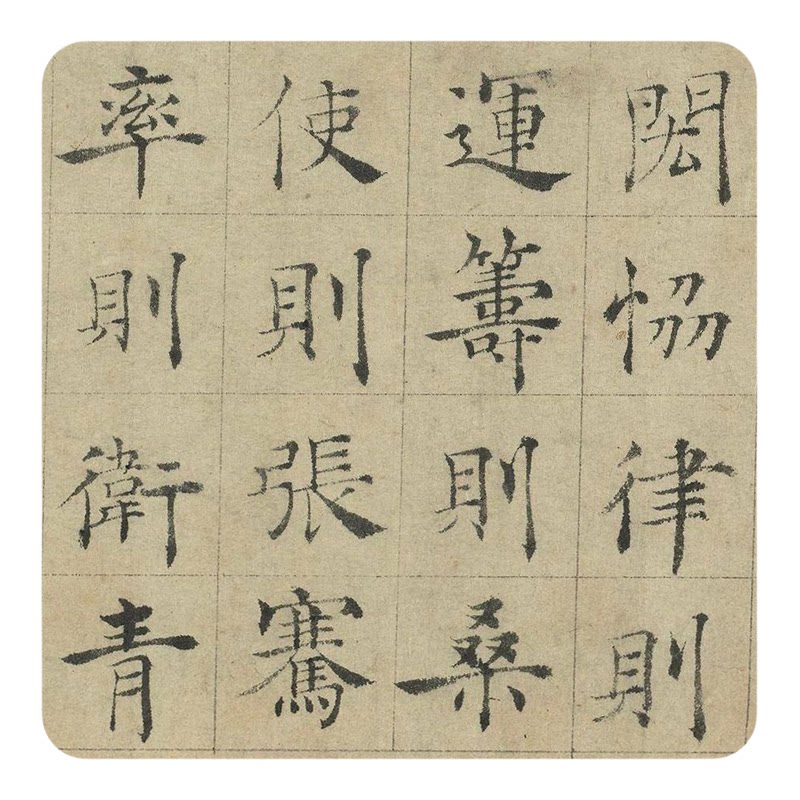 閎恊律則
運籌則桑
使則張騫
率則衛青